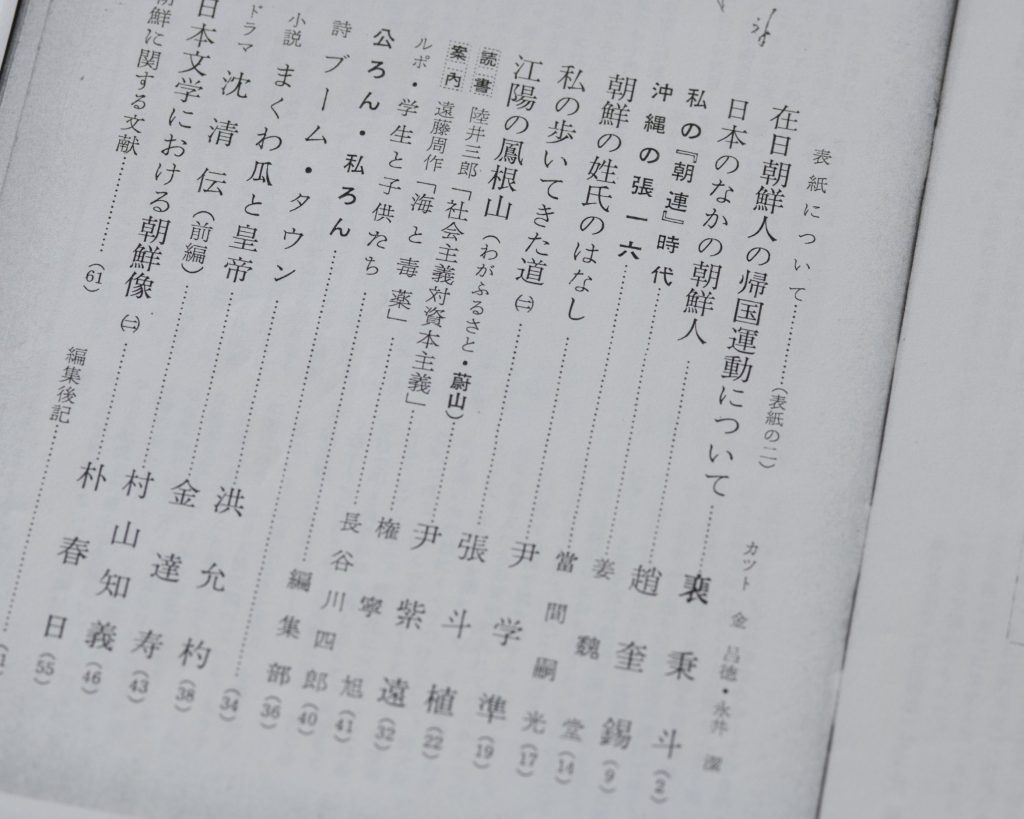 表紙について…………(表紙の二)
カット 金昌徳・永井潔
在日朝鮮人の帰国運動について……裵秉斗(2)
日本のなかの朝鮮人……趙奎錫(9)
私の『朝連』時代……姜魏堂(14)
沖縄の張一六……當間嗣光(17)
朝鮮の姓氏のはなし……尹学準(19)
私の歩いてきた道㈡……張斗植(22)
江陽の鳳根山(わがふるさと・蔚山)……尹紫遠(32)
読書案内
陸井三郎「社会主義対資本主義」……権寧旭(41)
遠藤周作「海と毒薬」……長谷川四郎(40)
ルポ・学生と子供たち……編集部(36)
公ろん・私ろん……(34)
詩 ブーム・タウン……洪允杓(38)
小説 まくわ瓜と皇帝……金達寿(43)
ドラマ 沈清伝(前編)……村山知義(46)
日本文学における朝鮮像㈡……朴春日(55)
朝鮮に関する文献……(61)
編集後記……